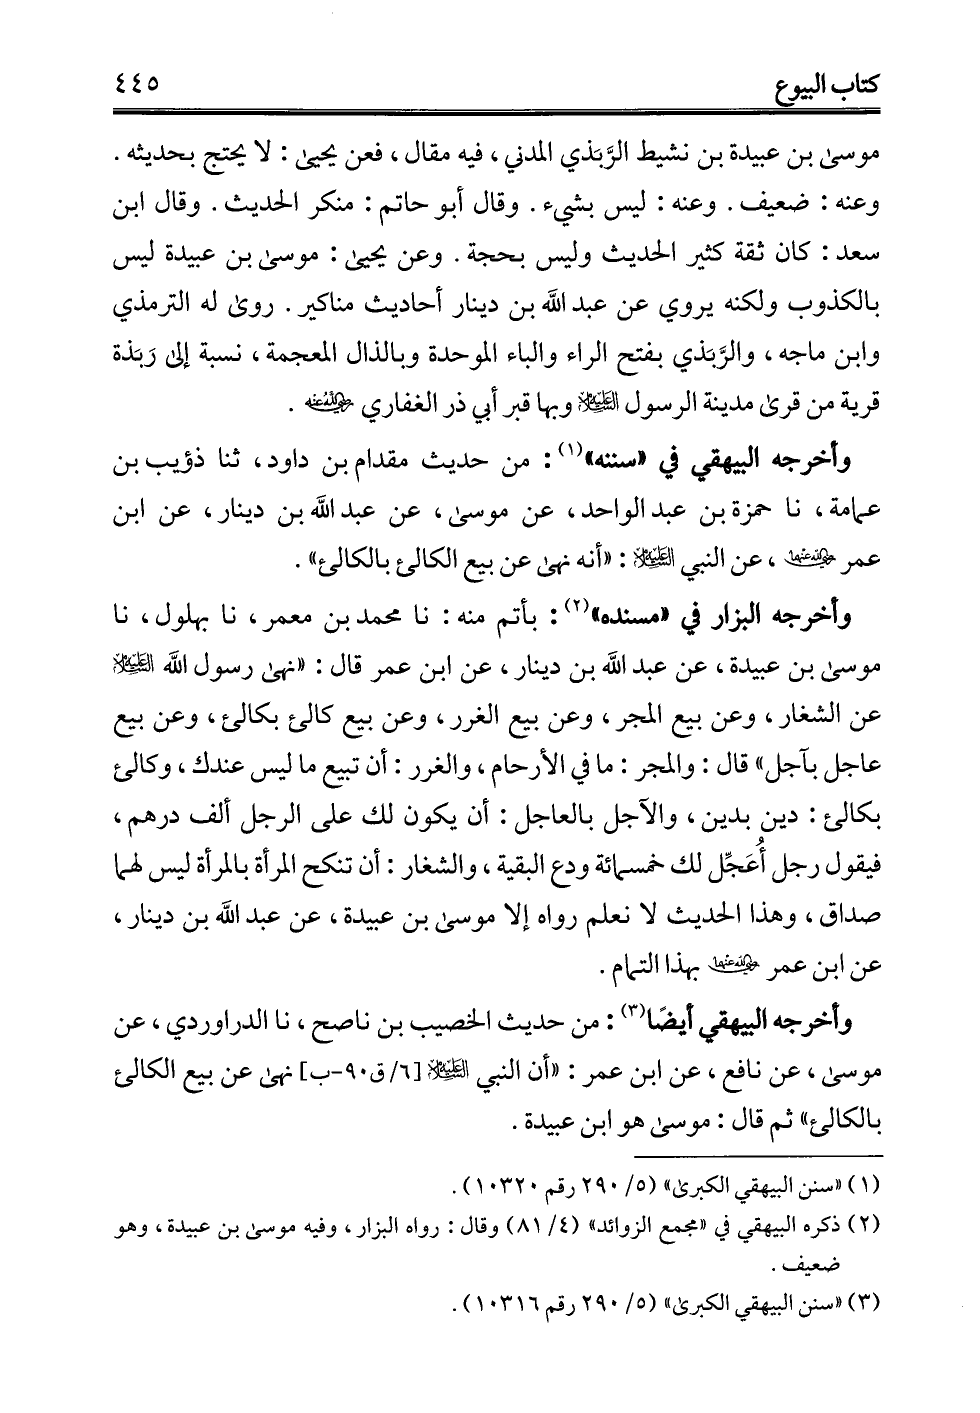 كتاب البيوع
٤٤٥
موسىٰ بن عبيدة بن نشيط الرَّبَذي المدني، فيه مقال، فعن يحيىٰ: لا يحتج بحديثه.
وعنه: ضعيف. وعنه: ليس بشيء. وقال أبو حاتم: منكر الحديث. وقال ابن
سعد: كان ثقة كثير الحديث وليس بحجة. وعن يحيىٰ: موسىٰ بن عبيدة ليس
بالكذوب ولكنه يروي عن عبد الله بن دينار أحاديث مناكير. روىٰ له الترمذي
وابن ماجه، والرَّبَذي بفتح الراء والباء الموحدة وبالذال المعجمة، نسبة إلىٰ رَبَذة
قرية من قرىٰ مدينة الرسول عليه السلام وبها قبر أبي ذر الغفاري رضي الله عنه.
وأخرجه البيهقي في «سننه»(١): من حديث مقدام بن داود، ثنا ذؤيب بن
عمامة، نا حمزة بن عبد الواحد، عن موسىٰ، عن عبد الله بن دينار، عن ابن
عمر رضي الله عنهما، عن النبي عليه السلام: «أنه نهىٰ عن بيع الكالئ بالكالئ».
وأخرجه البزار في «مسنده»(٢): بأتم منه: نا محمد بن معمر، نا بهلول، نا
موسىٰ بن عبيدة، عن عبد الله بن دينار، عن ابن عمر قال: «نهىٰ رسول الله عليه السلام
عن الشغار، وعن بيع المجر، وعن بيع الغرر، وعن بيع كالئ بكالئ، وعن بيع
عاجل بآجل» قال: والمجر: ما في الأرحام، والغرر: أن تبيع ما ليس عندك، وكالئ
بكالئ: دين بدين، والآجل بالعاجل: أن يكون لك على الرجل ألف درهم،
فيقول رجل أُعَجِّل لك خمسمائة ودع البقية، والشغار: أن تنكح المرأة بالمرأة ليس لهما
صداق، وهذا الحديث لا نعلم رواه إلا موسىٰ بن عبيدة، عن عبد الله بن دينار،
عن ابن عمر رضي الله عنهما بهذا التمام.
وأخرجه البيهقي أيضًا(٣): من حديث الخصيب بن ناصح، نا الدراوردي، عن
موسىٰ، عن نافع، عن ابن عمر: «أن النبي عليه السلام [٦/ق٩٠-ب] نهىٰ عن بيع الكالئ
بالكالئ» ثم قال: موسىٰ هو ابن عبيدة.
(١) «سنن البيهقي الكبرىٰ» (٥/ ٢٩٠ رقم ١٠٣٢٠).
(٢) ذكره البيهقي في «مجمع الزوائد» (٤/ ٨١) وقال: رواه البزار، وفيه موسىٰ بن عبيدة، وهو
ضعيف.
(٣) «سنن البيهقي الكبرىٰ» (٥/ ٢٩٠ رقم ١٠٣١٦).